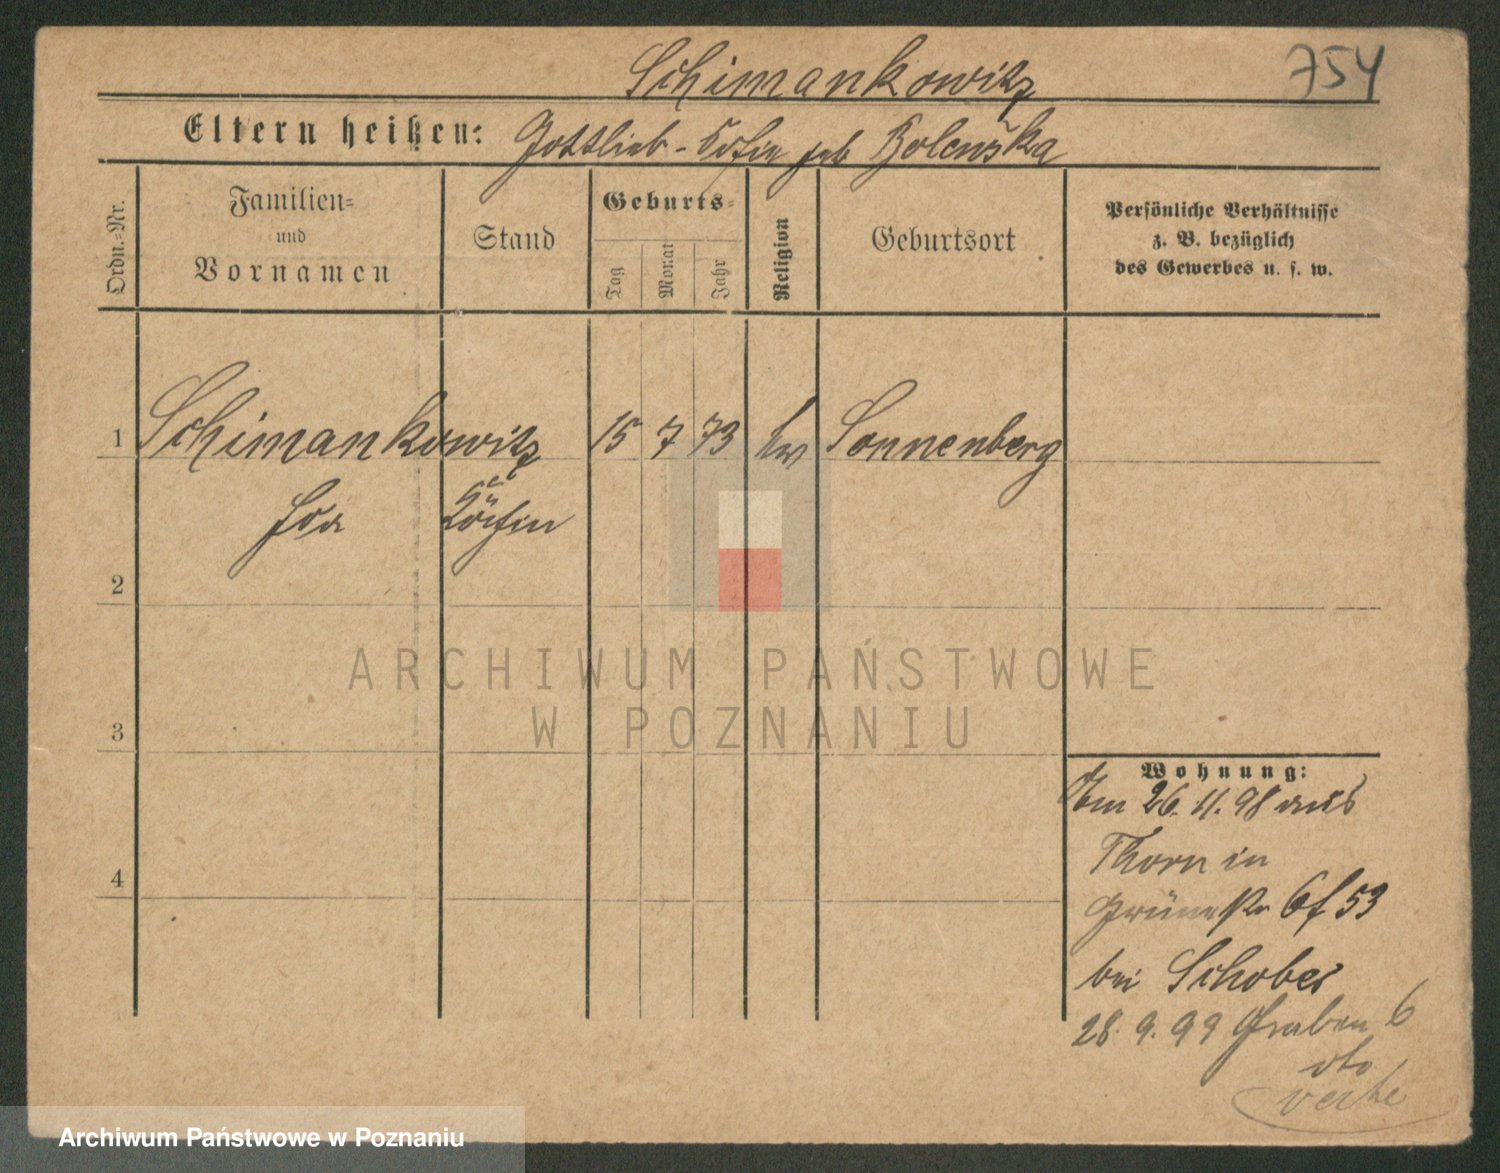 Schimankowitz
754
Eltern heißen: Gottlieb - Sofie geb Bolenska
Ordn.-Nr.
Familien-
und
Vornamen
Stand
Geburts-
Tag
Monat
Jahr
Religion
Geburtsort
Persönliche Verhältnisse
z. B. bezüglich
des Gewerbes u. s. w.
1 Schimankowitz 15 7 73 ev Sonnenberg
Ida Köchin
2
ARCHIWUM PAŃSTWOWE
W POZNANIU
3
Wohnung:
Am 26. 11. 98 aus
Thorn in
Grünestr 53
bei Schober
28. 9. 99 Graben 6
4
Archiwum Państwowe w Poznaniu